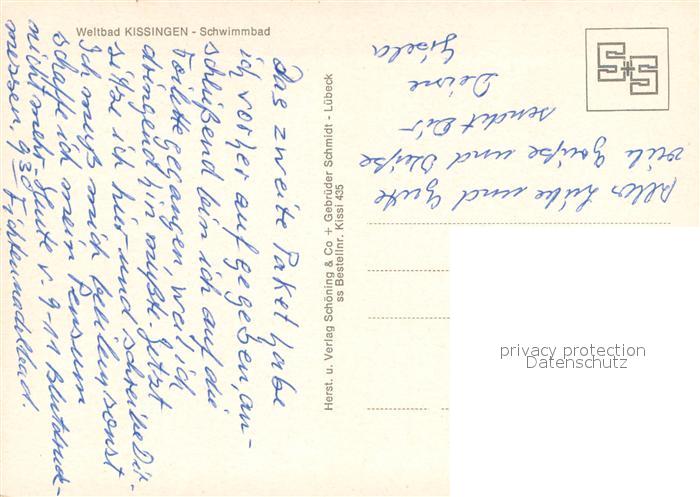 Weltbad KISSINGEN - Schwimmbad
Das zweite Paket habe
ich vorher aufgegeben, an-
schließend bin ich auf die
Toilette gegangen, weil ich
dringend hin mußte. Jetzt
sitze ich hier und schreibe Dir.
Ich muß mich beeilen, sonst
schaffe ich mein Pensum
nicht mehr. Heute v. 9-11 Blutdruck-
messen. 9³⁰ Fichtennadelbad.
Herst. u. Verlag Schöning & Co + Gebrüder Schmidt - Lübeck
ss Bestellnr. Kissi 435
Alles Liebe und Gute
viele Grüße und Küße
sendet Dir
Deine
Gisela
privacy protection
Datenschutz